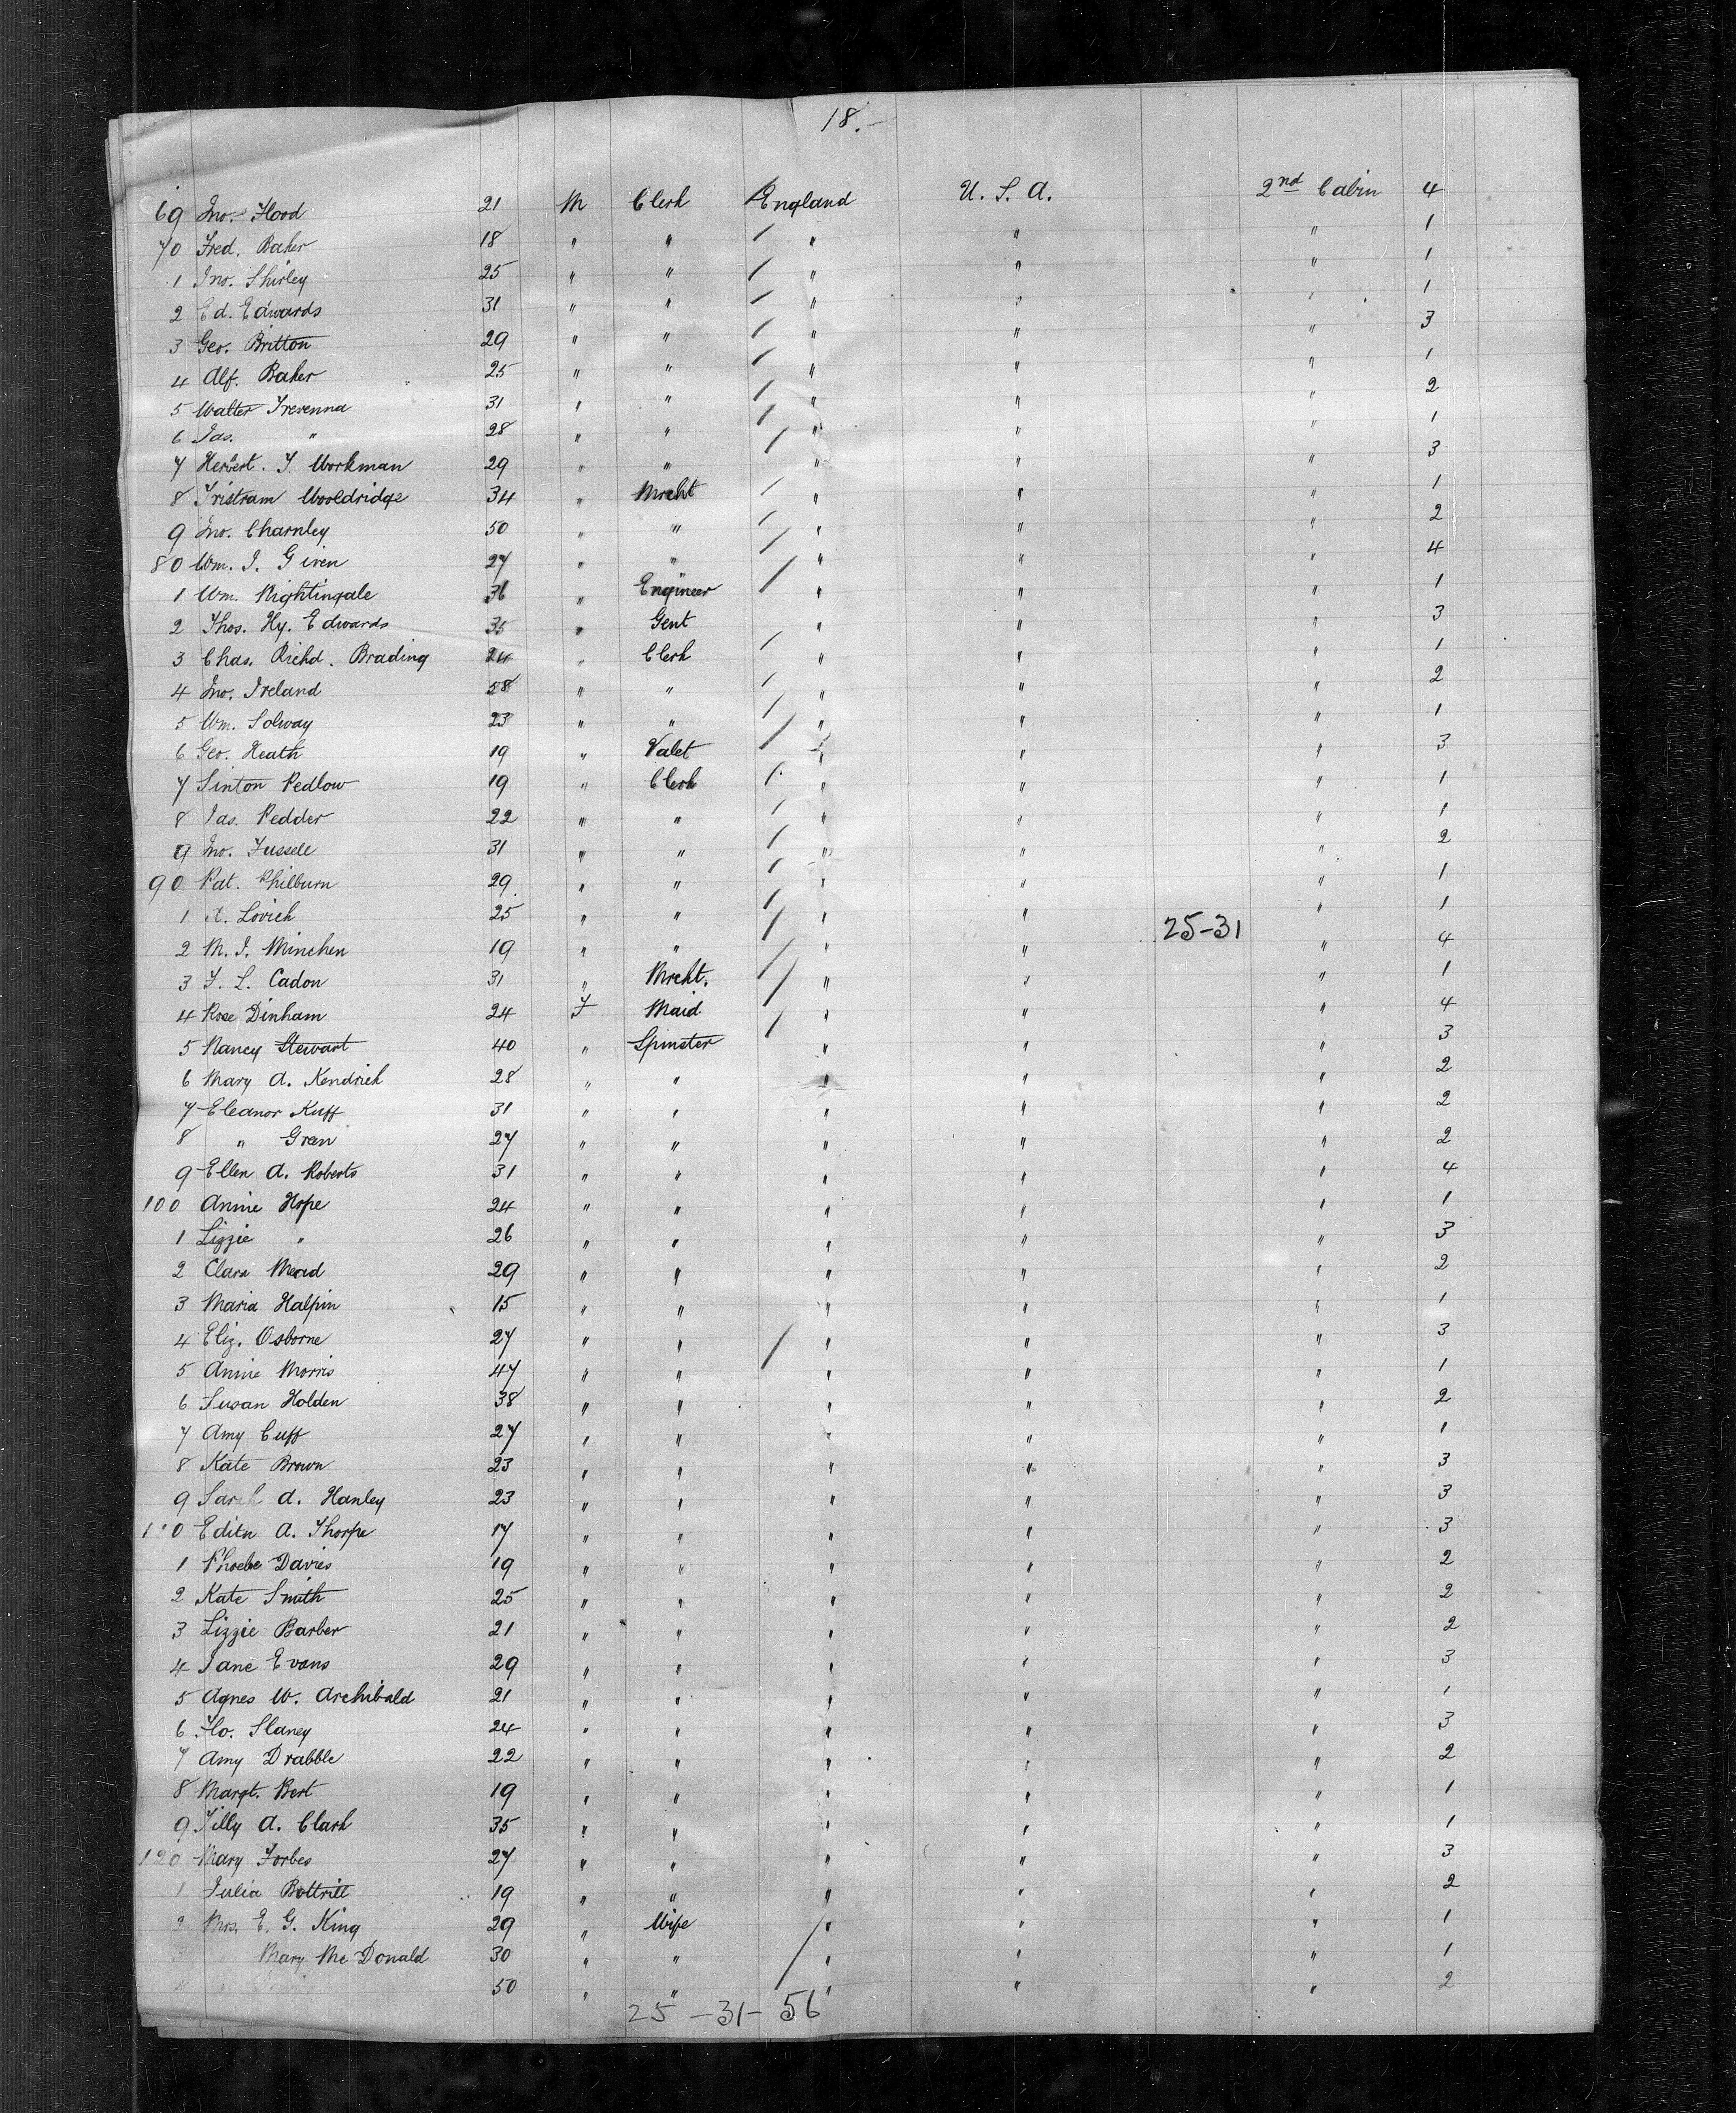 18.-
69 Jno. Hood 21 M Clerk England U. S. A. 2nd Cabin 4
70 Fred. Baker 18 " " " " " 1
1 Jno. Shirley 25 " " " " " 1
2 Ed. Edwards 31 " " " " " 1
3 Geo. Britton 29 " " " " " 3
4 Alf. Baker 25 " " " " " 1
5 Walter Trevenna 31 " " " " " 2
6 Jas. " 28 " " " " " 1
7 Herbert. T. Workman 29 " " " " " 3
8 Tristram Wooldridge 34 " Mrcht " " " 1
9 Jno. Charnley 50 " " " " " 2
80 Wm. J. Given 27 " " " " " 4
1 Wm. Nightingale 36 " Engineer " " " 1
2 Thos. Hy. Edwards 35 " Gent " " " 3
3 Chas. Richd. Brading 24 " Clerk " " " 1
4 Jno. Ireland 58 " " " " " 2
5 Wm. Solway 23 " " " " " 1
6 Geo. Heath 19 " Valet " " " 3
7 Sinton Pedlow 19 " Clerk " " " 1
8 Jas. Pedder 22 " " " " " 1
9 Jno. Fussell 31 " " " " " 2
90 Pat. Philburn 29 " " " " " 1
1 A. Lovich 25 " " " " " 1
2 M. J. Minchen 19 " " " " 25-31 " 4
3 F. L. Cadon 31 " Mrcht. " " " 1
4 Rose Dinham 24 F Maid " " " 4
5 Nancy Stewart 40 " Spinster " " " 3
6 Mary A. Kendrick 28 " " " " " 2
7 Eleanor Kuff 31 " " " " " 2
8 " Gran 27 " " " " " 2
9 Ellen A. Roberts 31 " " " " " 4
100 Annie Hope 24 " " " " " 1
1 Lizzie " 26 " " " " " 3
2 Clara Mead 29 " " " " " 2
3 Maria Halpin 15 " " " " " 1
4 Eliz. Osborne 27 " " " " " 3
5 Annie Morris 47 " " " " " 1
6 Susan Holden 38 " " " " " 2
7 Amy Cuff 27 " " " " " 1
8 Kate Brown 23 " " " " " 3
9 Sarah A. Hanley 23 " " " " " 3
110 Edith A. Thorpe 17 " " " " " 3
1 Phoebe Davies 19 " " " " " 2
2 Kate Smith 25 " " " " " 2
3 Lizzie Barber 21 " " " " " 2
4 Jane Evans 29 " " " " " 3
5 Agnes W. Archibald 21 " " " " " 1
6 Flo. Slaney 24 " " " " " 3
7 Amy Drabble 22 " " " " " 2
8 Margt. Bert 19 " " " " " 1
9 Tilly A. Clark 35 " " " " " 1
120 Mary Forbes 27 " " " " " 3
1 Julia Bottrill 19 " " " " " 2
2 Mrs. E. G. King 29 " Wife " " " 1
3 Mary Mc Donald 30 " " " " " 1
50 " " " " " 2
25 -31- 56